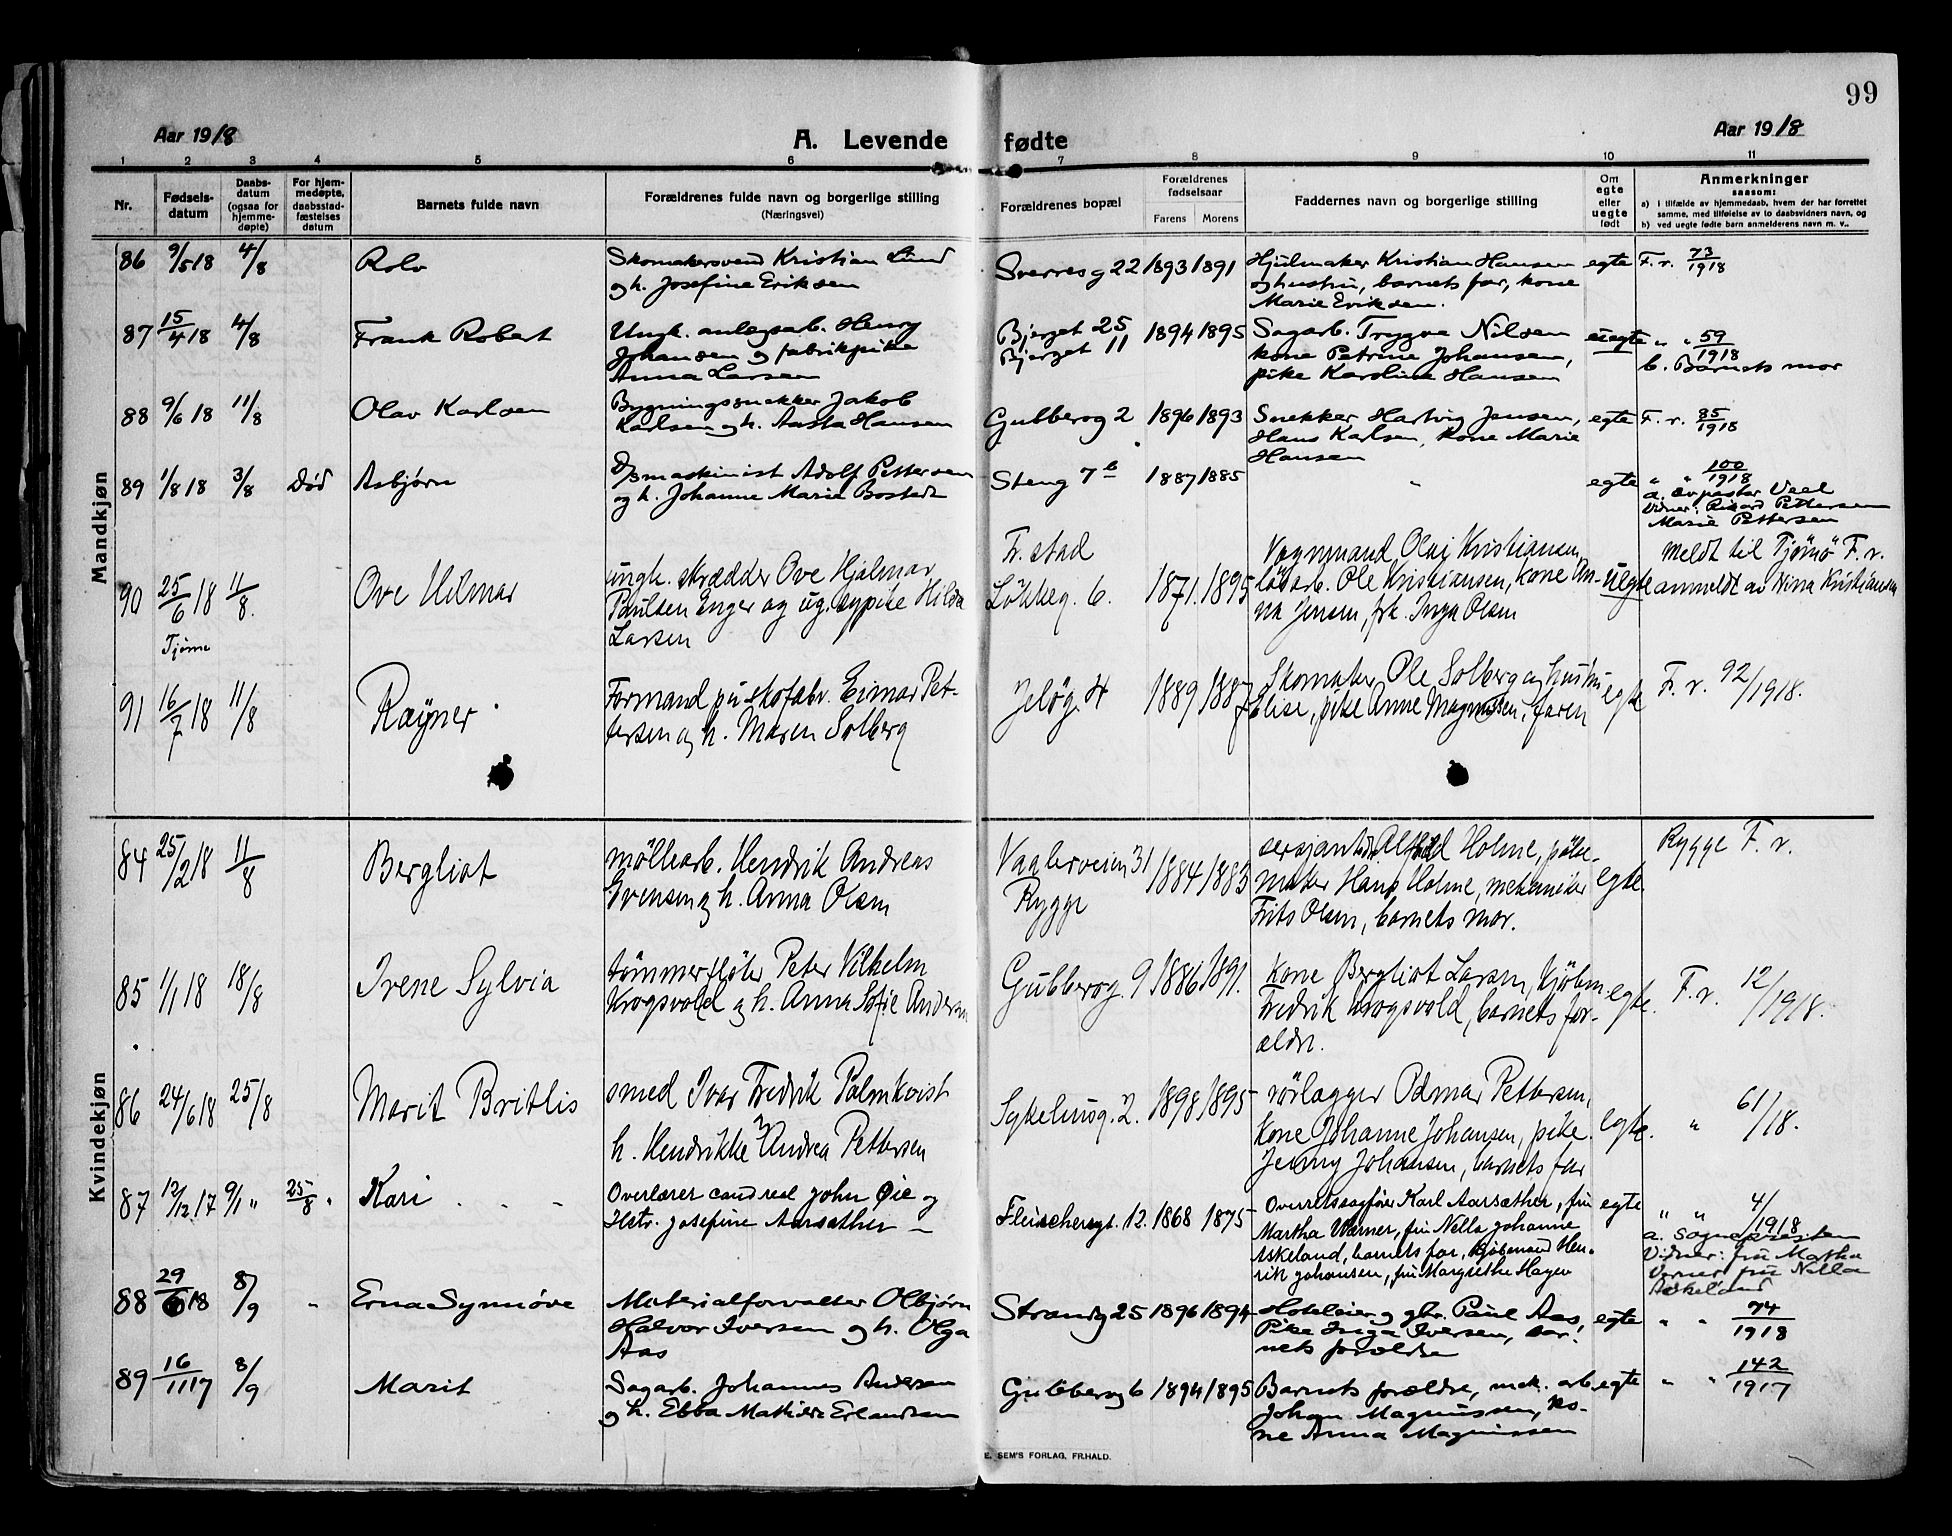 99
Aar 1918 A. Levende fødte Aar 1918
1 2 3 4 5 6 7 8 9 10 11
Nr. Fødsels-datum Daabs-datum (ogsaa for hjemme-døpte) For hjem-medøpte, daabsstad-fæstelses datum Barnets fulde navn Forældrenes fulde navn og borgerlige stilling (Næringsvei) Forældrenes bopæl Forældrenes fødselsaar Farens Morens Faddernes navn og borgerlige stilling Om egte eller uegte født Anmerkninger saasom:
a) i tilfælde av hjemmedaab, hvem der har forrettet samme, med tilføielse av to daabsvidners navn, og
b) ved uegte fødte barn anmelderens navn m. v..
Mandkjøn
86 9/5 18 4/8 Rolv Skomakersvend Kristian Lund Sverresg 22 1893 1891 Hjulmaker Kristian Hansen egte F. r. 73/1918
og h. Josefine Eriksen og hustru, barnets far, kone
Marie Eriksen.
87 15/4 18 4/8 Frank Robert Ungk. anlegsarb. Henry Bjerget 25 1894 1895 Sagarb. Trygve Nilsen uegte " " 59/1918
Johansen og fabrikpike Bjerget 11 kone Petrine Johansen, b. Barnets mor
Anna Larsen pike Karoline Hansen
88 9/6 18 11/8 Olav Karlsen Bygningssnekker Jakob Gubberog 2 1896 1893 Snekker Hartvig Jensen, egte F. r. 85/1918
Karlsen og h. Aasta Hansen Hans Karlsen, kone Marie
Hansen
89 1/8 18 3/8 Død Asbjørn D/smaskinist Adolf Pettersen Steng 7 b 1887 1885 " egte " " 100/1918
og h. Johanne Marie Bostedt a. Veel
Vidner: Pettersen
Marie Pettersen
90 25/6 18 11/8. Ove Hilmar ungk. skrædder Ove Hjalmar Fr. stad 1871. 1895 Vognmand Olaj Kristiansen, uegte meldt til Tjømø F. r.
Tjøme Paulsen Enger og ug. sypike Hilda Løkkeg. 6. løsarb. Ole Kristiansen, kone An- anmeldt av Nina Kristiansen
Larsen na Jensen, frk. Inga Olsen
91 16/7 18 11/8 Raÿner Formand på skofabr. Einar Pet- Jeløg. 4 1889 1887 Skomaker Ole Solberg og hustru egte F. r. 92/1918.
tersen og h. Maren Solberg Elise, pike Anne Magnussen, faren
Kvindekjøn
84 25/2 18 11/8 Bergliot möllearb. Hendrik Andreas Vaalerveien 31 1884 1883 sersjant Holme, pølse- egte. Rygge F. r.
Evensen og h. Anna Olsen Rygge maker Hans Holme, mekaniker
Frits Olsen, barnets mor.
85 1/1 18 18/8 Irene Sylvia tömmerfløter Peter Vilhelm Gubberog. 9 1886 1891. Kone Bergliot Larsen, kjøbm. egte. F. r. 12/1918.
Krogsvold og h. Anna Sofie Andersen Fredrik Krogsvold, barnets for-
ældre.
86 24/6 18 25/8 Marit Britlis smed Ivar Fredrik Palmkvist Sykehusg. 2. 1898 1895 rörlægger Odmar Pettersen, egte. " 61/18.
h. Hendrikke Andrea Pettersen kone Johanne Johansen, pike
Jenny Johansen, barnets far
87 12/12 17 9/1 " 25/8 " Kari Overlærer cand real John Øie og Fleischersgt. 12. 1868 1875 Overretssagfører Karl Aarsæther, fru egte " " 4/1918
Hstr. Josefine Aarsæther Martha Werner, fru Nella Johanne a. Sognepresten
Askeland, barnets far, kjøbmand Hen- Vidner: fru Martha
rik Johansen, fru Margrethe Hagen Verner fru Nella
Askeland
88 29/6 18 8/9 " Erna Synnöve Materialforvalter Olbjørn Strandg 25 1896 1894 Hoteleier og gbr. Paul Aas, egte " " 74/1918
Halvor Iversen og h. Olga Pike Inga Iversen, bar-
Aas nets forældre
89 16/11 17 8/9 Marit Sagarb. Johannes Andersen Gubberog 6 1894 1895 Barnets forældre, mek. arb. egte " " 142/1917
og h. Ebba Mathilde Erlandsen Johan Magnussen, ko-
ne Anna Magnussen
E. SEM'S FORLAG, FR.HALD.